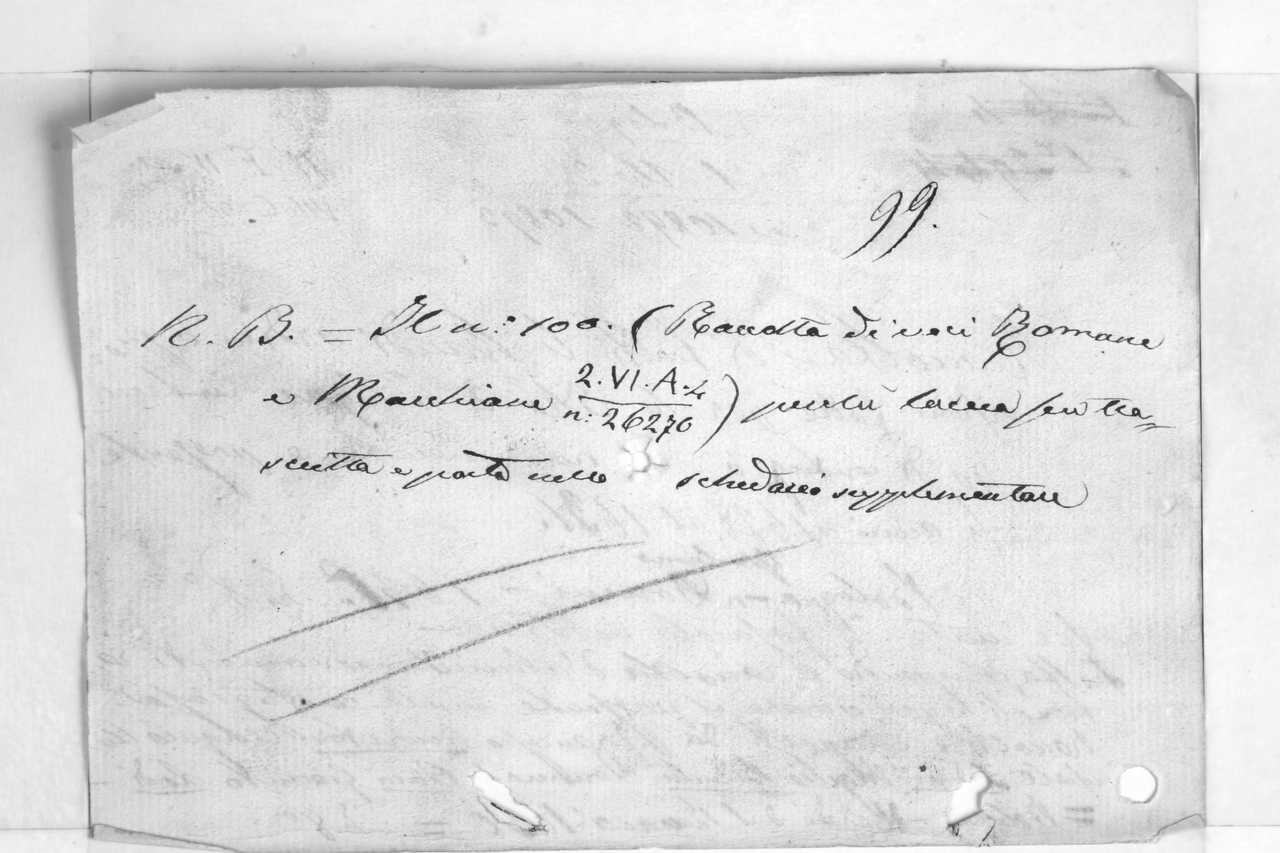 99.
N. B. = Il n.º 100. (Raccolta di voci Romane
e Marchiane 2.VI.A.4 n: 26270) perchè lacera fu tra=
scritta e posta nello schedario supplementare